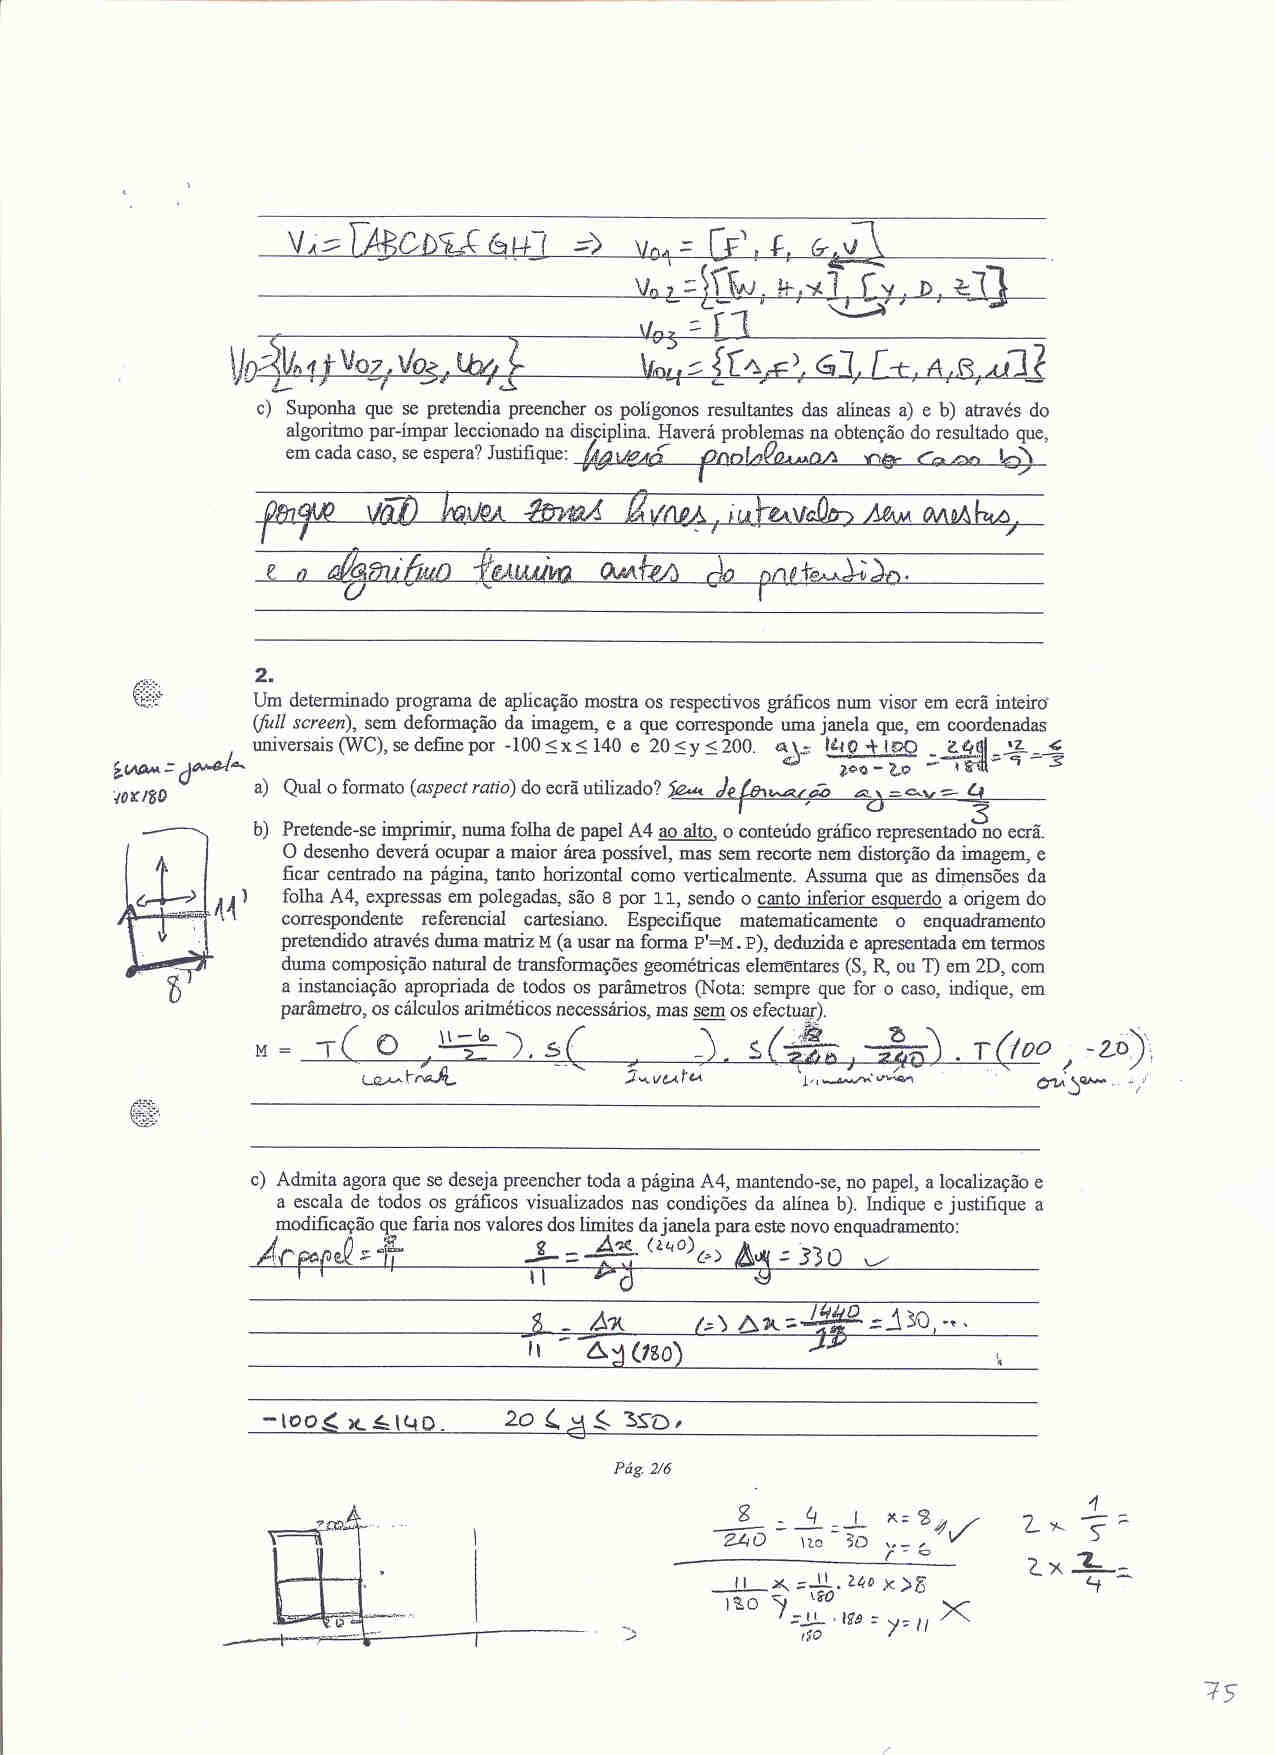 Vi = [ABCDEFGH] => Vo1 = [F', f, G, V]
Vo2 = {[W, H, X], [Y, D, Z]}
Vo3 = []
Vo = {Vo1, Vo2, Vo3, Vo4} Vo4 = {[ , F', G], [t, A, B, u]}
c) Suponha que se pretendia preencher os polígonos resultantes das alíneas a) e b) através do
algoritmo par-ímpar leccionado na disciplina. Haverá problemas na obtenção do resultado que,
em cada caso, se espera? Justifique: Haverá problemas no caso b)
porque vão haver zonas livres, intervalos sem arestas,
e o algoritmo termina antes do pretendido.
2.
Um determinado programa de aplicação mostra os respectivos gráficos num visor em ecrã inteiro
(full screen), sem deformação da imagem, e a que corresponde uma janela que, em coordenadas
universais (WC), se define por -100 ≤ x ≤ 140 e 20 ≤ y ≤ 200. aj = 140 + 100 / 200 - 20 = 240 / 180 = 12 / 9 = 4 / 3
Ecran = janela
240x180
a) Qual o formato (aspect ratio) do ecrã utilizado? Sem deformação aj = av = 4/3
b) Pretende-se imprimir, numa folha de papel A4 ao alto, o conteúdo gráfico representado no ecrã.
O desenho deverá ocupar a maior área possível, mas sem recorte nem distorção da imagem, e
ficar centrado na página, tanto horizontal como verticalmente. Assuma que as dimensões da
folha A4, expressas em polegadas, são 8 por 11, sendo o canto inferior esquerdo a origem do
correspondente referencial cartesiano. Especifique matematicamente o enquadramento
pretendido através duma matriz M (a usar na forma P'=M.P), deduzida e apresentada em termos
duma composição natural de transformações geométricas elementares (S, R, ou T) em 2D, com
a instanciação apropriada de todos os parâmetros (Nota: sempre que for o caso, indique, em
parâmetro, os cálculos aritméticos necessários, mas sem os efectuar).
11'
8'
M = T( 0 , 11-6 / 2 ). S( , ). S( 8 / 240 , 8 / 240 ). T(100 , -20)
centrar Inverter Dimensionar origem
c) Admita agora que se deseja preencher toda a página A4, mantendo-se, no papel, a localização e
a escala de todos os gráficos visualizados nas condições da alínea b). Indique e justifique a
modificação que faria nos valores dos limites da janela para este novo enquadramento:
Ar papel = 8/11 8/11 = Δx (240) / Δy (=) Δy = 330 ✓
8/11 = Δx / Δy (180) (=) Δx = 1440 / 11 = 130,...
-100 ≤ x ≤ 140. 20 ≤ y ≤ 350.
Pág. 2/6
200
20
8/240 = 4/120 = 1/30 x = 8 y = 6 ✓
11/180 x = 11/180 . 240 x > 8
y = 11/180 . 180 = y = 11 X
2 x 1/5 =
2 x 2/4 =
75